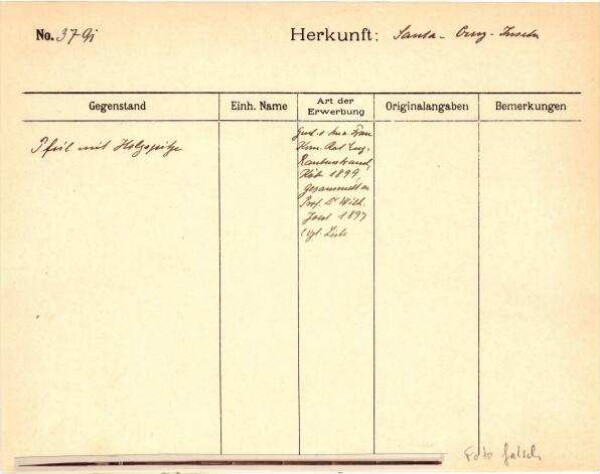 No. 3791
Herkunft: Santa - Cruz - Inseln
Gegenstand
Einh. Name
Art der
Erwerbung
Originalangaben
Bemerkungen
Pfeil mit Holzspitze
Frau
Rat Eug.
Rautenstrauch,
Köln 1899,
gesammelt
Prof. Dr Wilh.
Joest 1897
Foto falsch